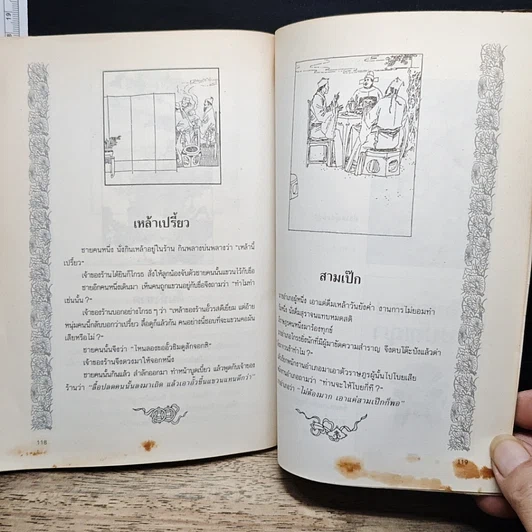 เหล้าเปรี้ยว
ชายคนหนึ่ง นั่งกินเหล้าอยู่ในร้าน กินพลางบ่นพลางว่า “เหล้านี้
เปรี้ยว”
เจ้าของร้านได้ยินก็โกรธ สั่งให้ลูกน้องจับตัวชายคนนั้นแขวนไว้กับขื่อ
ชายอีกคนหนึ่งเดินมา เห็นคนถูกแขวนอยู่กับขื่อจึงถามว่า “ทำไมทำ
เช่นนั้น ?”
เจ้าของร้านบอกอย่างโกรธ ๆ ว่า “เหล้าของร้านอั๊วรสดีเยี่ยม แต่อ้าย
หนุ่มคนนี้กลับบอกว่าเปรี้ยว ลื้อดูก็แล้วกัน คนอย่างนี้ชอบที่จะแขวนคอมัน
เสียหรือไม่ ?”
ชายคนนั้นจึงว่า “ไหนลองขออั๊วชิมดูสักจอกสิ”
เจ้าของร้านจึงตวงมาให้จอกหนึ่ง
ชายคนนั้นกินแล้ว สำลักออกมา ทำหน้าบูดเบี้ยว แล้วพูดกับเจ้าของ
ร้านว่า “ลื้อปลดคนนั้นลงมาเถิด แล้วเอาอั๊วขึ้นแขวนแทนดีกว่า”
118
สามเป๊ก
นายอำเภอผู้หนึ่ง เอาแต่ดื่มเหล้าวันยังค่ำ งานการไม่ยอมทำ
นั่งดื่มสุราจนแทบหมดสติ
ราษฎรคนหนึ่งมาร้องทุกข์
นายอำเภอโกรธยิ่งนักที่มีผู้มาขัดความสำราญ จึงตบโต๊ะปังแล้วด่า
ทำไม ?”
พนักงานอำเภอมาเอาตัวราษฎรผู้นั้นไปโบยเสีย
อำเภอถามว่า “ท่านจะให้โบยกี่ที ?”
ตอบว่า “ไม่ต้องมาก เอาแค่สามเป๊กก็พอ”
119